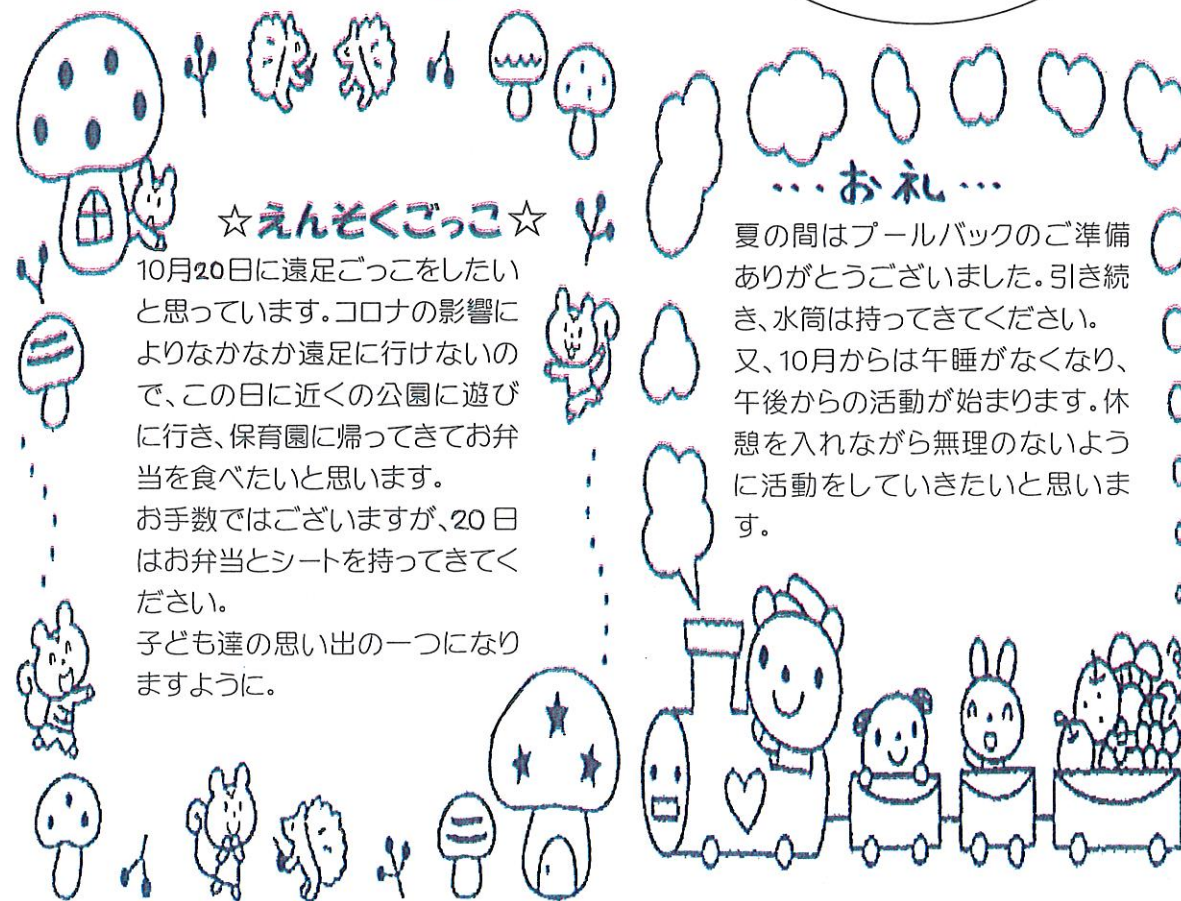 ☆えんそくごっこ☆
10月20日に遠足ごっこをしたい
と思っています。コロナの影響に
よりなかなか遠足に行けないの
で、この日に近くの公園に遊び
に行き、保育園に帰ってきてお弁
当を食べたいと思います。
お手数ではございますが、20日
はお弁当とシートを持ってきてく
ださい。
子ども達の思い出の一つになり
ますように。
…お礼…
夏の間はプールバックのご準備
ありがとうございました。引き続
き、水筒は持ってきてください。
又、10月からは午睡がなくなり、
午後からの活動が始まります。休
憩を入れながら無理のないよう
に活動をしていきたいと思いま
す。